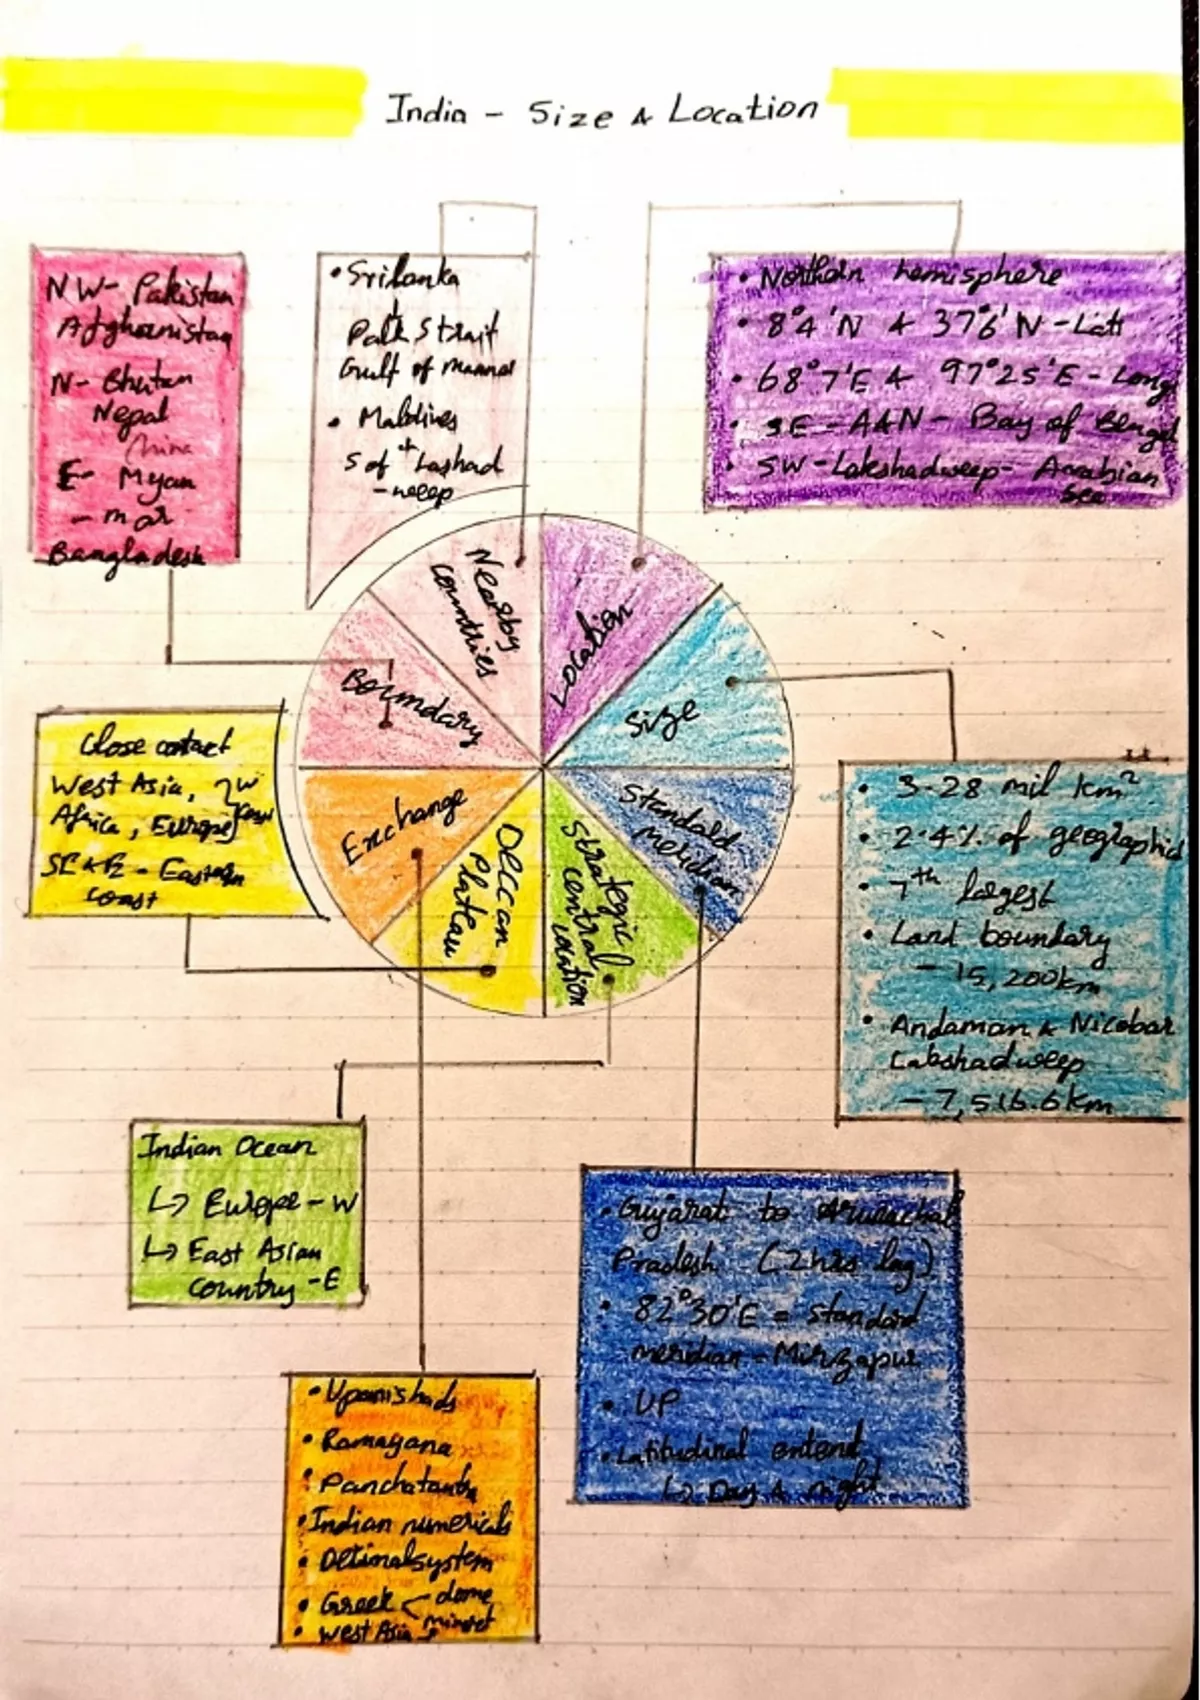 India - Size & Location
NW- Pakistan
Afghanistan
N- Bhutan
Nepal
China
E- Myan
- mar
Bangladesh
• Srilanka
Palk Strait
Gulf of mannar
• Maldives
S of Lashad
- weep
• Northern hemisphere
• 8°4'N & 37°6'N - Lati
• 68°7'E & 97°25'E - Long
• SE - A&N - Bay of Bengal
• SW - Lakshadweep - Arabian
Sea
Nearby
countries
Location
Boundary
Size
Exchange
Standard
meridian
Deccan
Plateau
Strategic
central
location
Close contact
West Asia, W
Africa, Europe
- Eastern
coast
• 3.28 mil km²
• 2.4% of geographical
• 7th largest
• Land boundary
- 15,200km
• Andaman & Nicobar
Lakshadweep
- 7,516.6km
Indian Ocean
↳ Europe - W
↳ East Asian
country - E
• Gujarat to Arunachal
Pradesh (2hrs lag)
• 82°30'E = standard
meridian - Mirzapur
• UP
• Latitudinal extend
↳ Day & night
• Upanishads
• Ramayana
• Panchatantra
• Indian numericals
• Decimal system
• Greek - dome
• West Asia → minaret